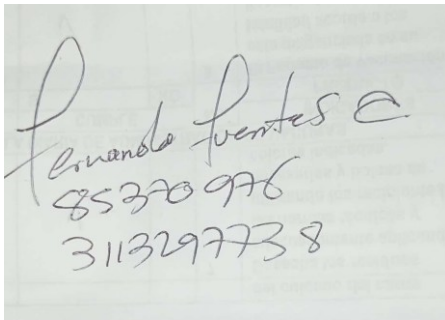 Fernando Fuentes C
85370976
3113297738